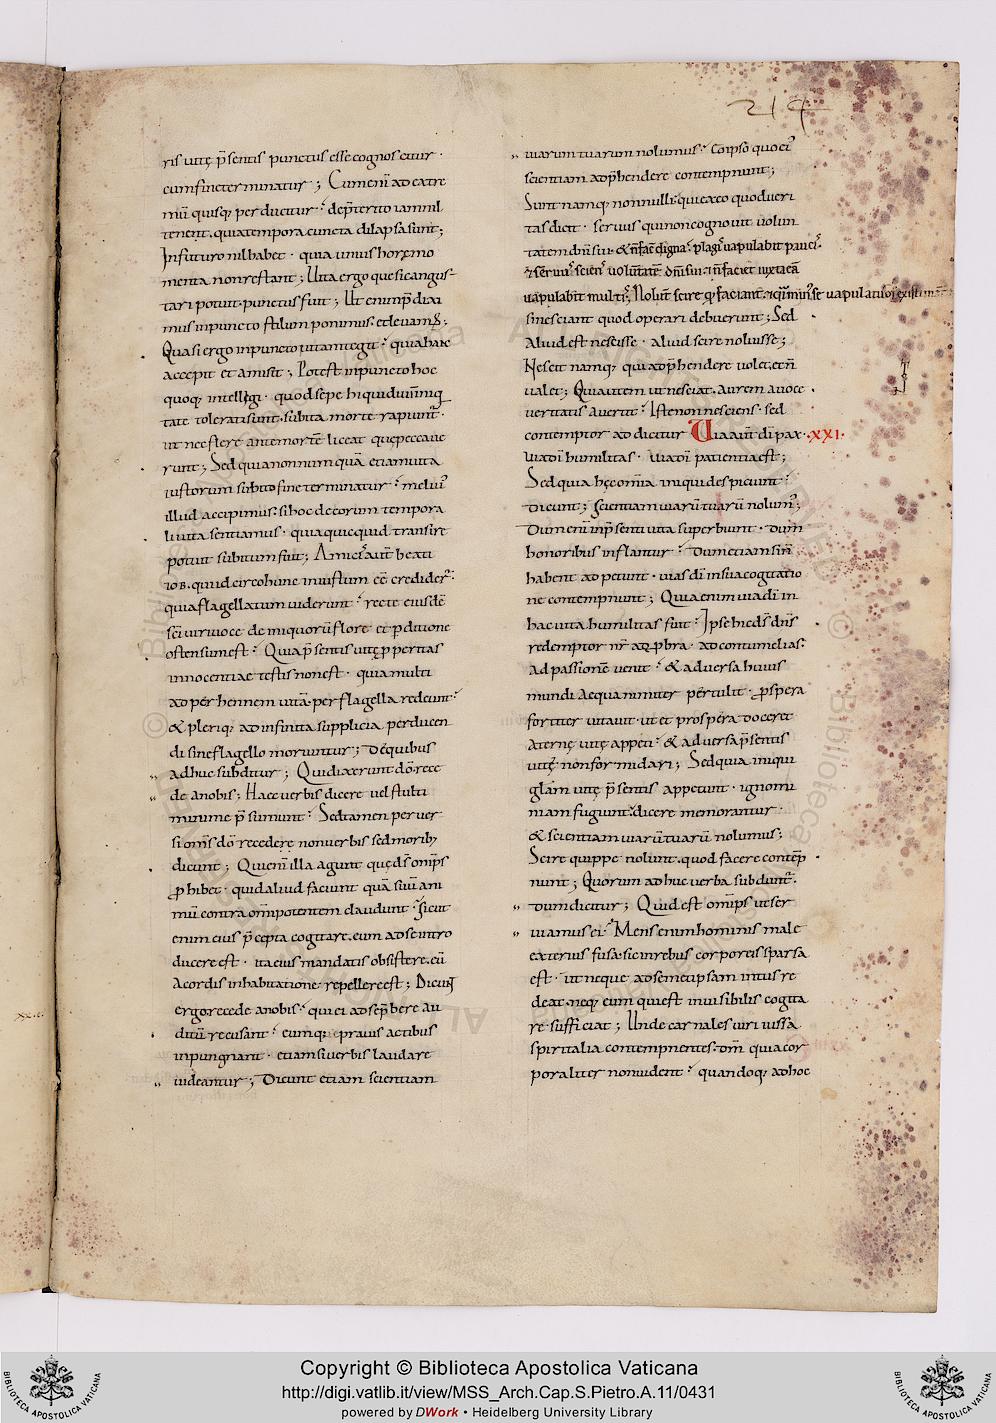 214
ris uitę p̄sentis punctus esse cognoscitur ·
cum fine terminatur ; Cum enī ad extre
mū quisq; perducitur · de p̄terito iam nil
tenent. quia tempora cuncta dilapsa sunt ;
In futuro nil habet · quia unius horę mo
menta non restant ; Uita ergo que sic angus
tari potuit · punctus fuit ; Ut enim p̄dixi
mus in puncto stilum ponimus. et leuam; ;
Quasi ergo in puncto uitam tegit · quia hanc
accepit et amisit ; Potest in puncto hoc
quoq; intellegi · quod sępe hi qui diu iniq
tate tolerati sunt. subita morte rapiunt̄ ·
ut nec flere ante mortē liceat que peccaue
runt ; Sed quia non num quā etiam uita
iustorum subito fine terminatur · meliuˀ
illud accipimus. si hoc de eorum tempora
li uita sentiamus · quia quicquid transire
potuit subitum fuit ; Amiciˀ aut̄ beati
iob. qui idcirco hunc iniustum eē credider̄ ·
quia flagellatum uiderunt · recte eiusdē
sc̄i uiri uoce de iniquorū flore et p̄ditione
ostensum est · Quia p̄sentis uitę p̄speritas
innocentiae testis non est · quia multi
ad perhennem uitā per flagella redeunt ·
& pleriq; ad infinita supplicia perducen
di sine flagello moriuntur ; De quibus
adhuc subditur ; Qui dixerunt dō rece
de a nobis ; Haec uerbis dicere uel stulti
minime p̄sumunt · Sed tamen peruer
si om̄s dō recedere non uerbis sed morib;
dicunt ; Qui enī illa agunt quę ds̄ om̄ps
p̄hibet · quid aliud faciunt quā suū ani
mū contra om̄ipotentem claudunt · Sicut
enim eius p̄cepta cogitare. eum ad se intro
ducere est · ita eius mandatis obsistere. eū
a cordis inhabitatione repellere est ; Dicunt
ergo recede a nobis · qui ei ad se p̄bere adi
ditū recusant · eumq; prauis actibus
inpungnant · etiam si uerbis laudare
uideantur ; Dicunt etiam scientiam
uiarum tuarum nolumus · Eo ipso quo eiˀ
scientiam adp̄hendere contempnunt ;
Sunt namq; nonnulli · qui ex eo quod ueri
tas dicit · seruus qui non cognouit uolun
tatem dn̄i sui · & n̄ facē digna · plagiˀ uapulabit pauciˀ ·
& seruuˀ scienˀ uoluntatē dn̄i sui · & n̄ faciet iuxta eā
uapulabit multiˀ ; Nolunt scire q̄ faciant · & quasi minˀ se uapulaturoˀ existimant
si nesciant quod operari debuerunt ; Sed
Aliud est nescisse · aliud scire noluisse ;
Nescit namq; qui adp̄hendere uolet. et n̄
ualet ; Qui autem ut nesciat. aurem a uoce
ueritatis auertit · Iste non nesciens · sed
contemptor addicitur Uia aut̄ dī pax · XXI ·
uia dī humilitas · uia dī patientia est ;
Sed quia hęc om̄ia iniqui despiciunt ·
Dicunt ; scientiam uiarū tuarū nolumˀ ;
Dum enī in p̄senti uita superbiunt · dum
honoribus inflantur · dum etiam si n̄
habent adpetunt · uias dī in sua cogitatio
ne contempnunt ; Quia enim uia dī in
hac uita humilitas fuit · Ipse hic ds̄ dn̄s
redemptor nr̄ ad p̄bra · ad contumelias ·
ad passionē uenit · & aduersa huius
mundi aequanimiter pertulit · p̄spera
fortiter uitauit · ut et prospera doceret
aternę uitę appeti · & aduersa p̄sentis
uitę non formidari ; Sed quia iniqui
glām uitę p̄sentis appetunt · ignomi
niam fugiunt. dicere memorantur ·
& scientiam uiarū tuarū nolumus ;
Scire quippe nolunt. quod facere contēp
nunt ; Quorum adhuc uerba subdunt̄ ·
dum dicitur ; Quid est om̄ips ut ser
uiamus ei · Mens enim hominis male
exterius fusa. sic in rebus corporeis sparsa
est · ut neque ad semet ipsam intus re
deat. neq; eum qui est inuisibilis cogita
re sufficiat ; Unde carnales uiri iussa
spiritalia contempnentes. dm̄ quia cor
poraliter non uident · quandoq; ad hoc
Copyright © Biblioteca Apostolica Vaticana
http://digi.vatlib.it/view/MSS_Arch.Cap.S.Pietro.A.11/0431
powered by DWork • Heidelberg University Library
BIBLIOTECA APOSTOLICA VATICANA
BIBLIOTECA APOSTOLICA VATICANA